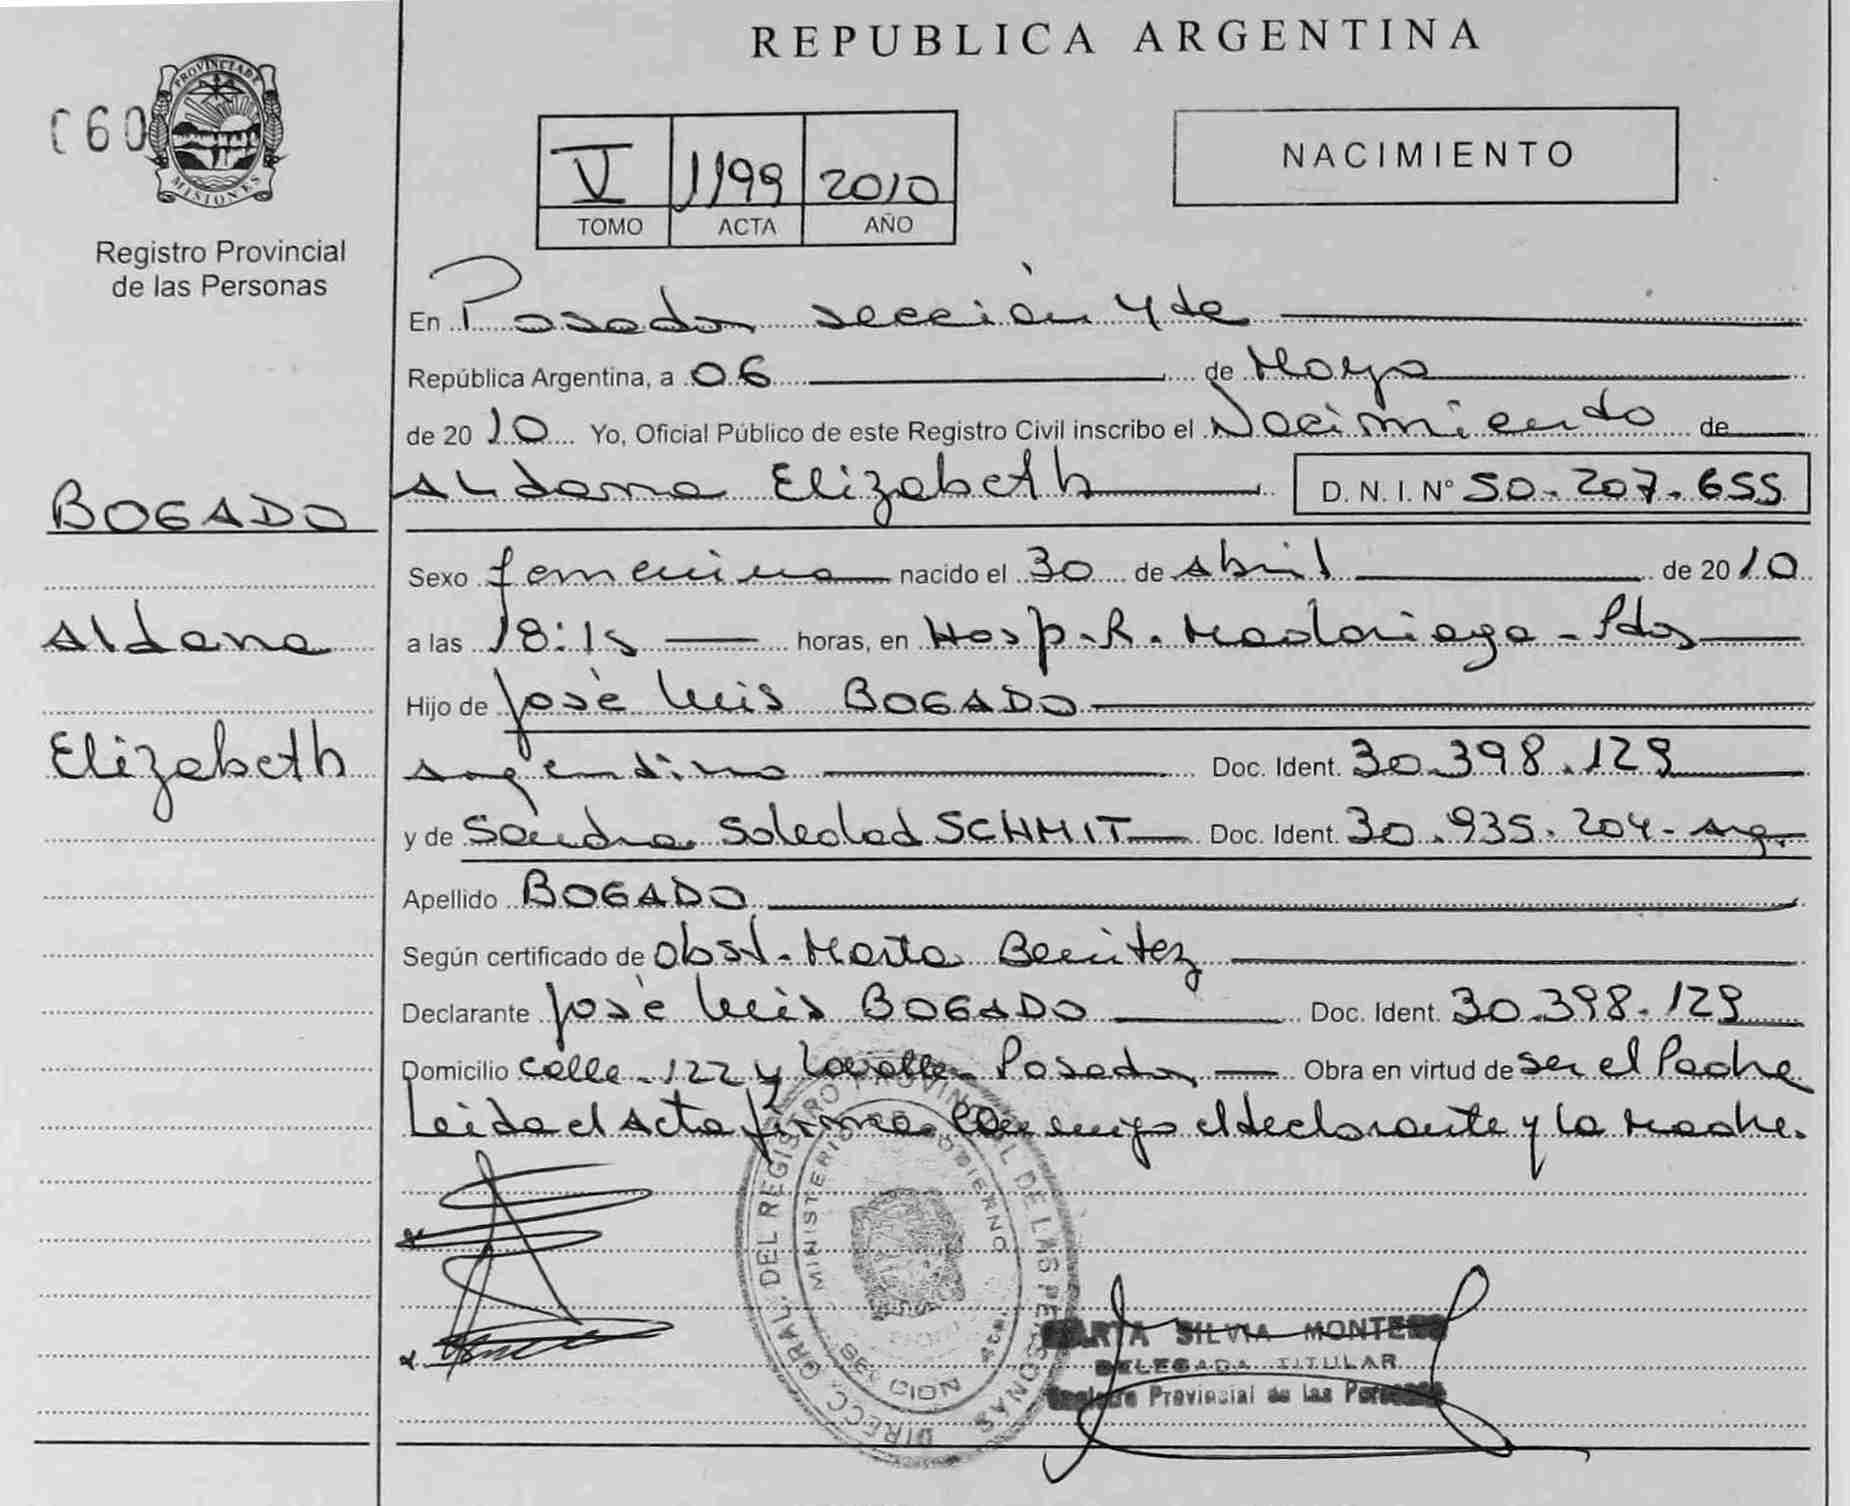 REPUBLICA ARGENTINA
C60
PROVINCIA DE MISIONES
Registro Provincial
de las Personas
V 1199 2010
TOMO ACTA AÑO
NACIMIENTO
En Posadas sección 4ta
República Argentina, a 06 de Mayo
de 2010 Yo, Oficial Público de este Registro Civil inscribo el Nacimiento de
Aldana Elizabeth D. N. I. N° 50.207.655
BOGADO
Aldana
Elizabeth
Sexo femenino nacido el 30 de Abril de 2010
a las 18:15 horas, en Hosp. R. Madariaga - Pdas
Hijo de José Luis BOGADO
argentino Doc. Ident. 30.398.129
y de Sandra Soledad SCHMIT Doc. Ident. 30.935.204 - arg.
Apellido BOGADO
Según certificado de Obst. Marta Benitez
Declarante José Luis BOGADO Doc. Ident. 30.398.129
Domicilio calle 122 y Lavalle - Posadas Obra en virtud de ser el Padre
Leida el Acta firma conmigo el declarante y la Madre.
DIRECC. GRAL. DEL REGISTRO PROVINCIAL DE LAS PERSONAS
MINISTERIO GOBIERNO
MARTA SILVIA MONTERO
DELEGADA TITULAR
Registro Provincial de las Personas